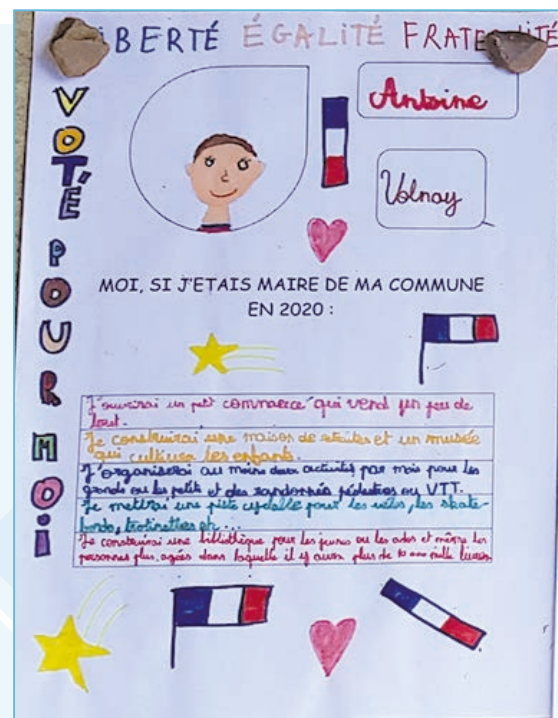 LIBERTÉ ÉGALITÉ FRATERNITÉ
VOTÉ POUR MOI
Antoine
Volnay
MOI, SI J'ETAIS MAIRE DE MA COMMUNE
EN 2020 :
J'ouvrirai un petit commerce qui vend un peu de
tout.
Je construirai une maison de retraites et un musée
qui cultivera les enfants.
J'organiserai au moins deux activités par mois pour les
grands ou les petits et des randonnées pédestres ou VTT.
Je mettrai une piste cyclable pour les vélos, les skate-
bords, trotinettes etc...
Je construirai une bibliothèque pour les jeunes ou les ados et même les
personnes plus agées dans laquelle il y aura plus de 10 000 mille livres.